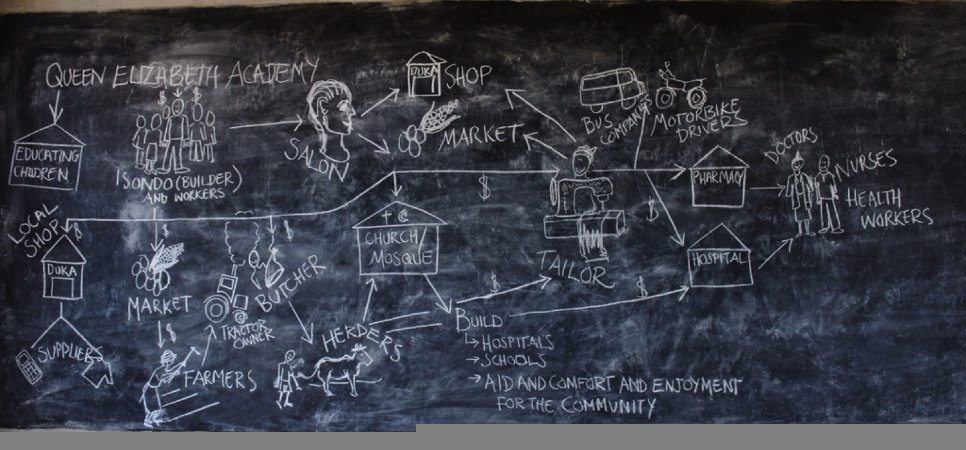 QUEEN ELIZABETH ACADEMY
EDUCATING
CHILDREN
$ $
ISONDO (BUILDER)
AND WORKERS
SALON
DUKA
SHOP
MARKET
BUS
COMPANY
MOTORBIKE
DRIVERS
PHARMACY
DOCTORS
NURSES
HEALTH
WORKERS
HOSPITAL
TAILOR
$
$
LOCAL
SHOP
$
DUKA
SUPPLIERS
$
MARKET
$
FARMERS
TRACTOR
OWNER
$
BUTCHER
HERDERS
CHURCH/
MOSQUE
$
$
BUILD
HOSPITALS
SCHOOLS
AID AND COMFORT AND ENJOYMENT
FOR THE COMMUNITY